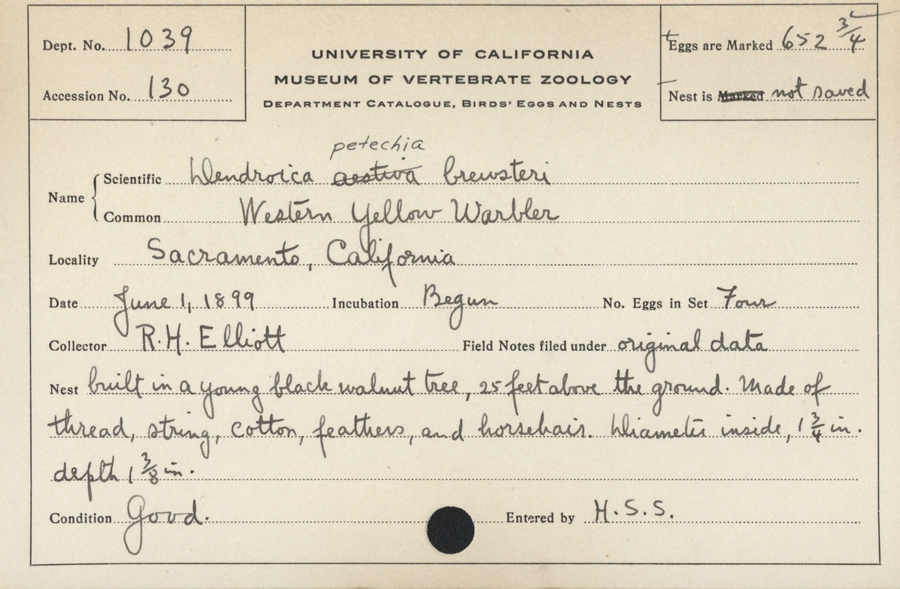 Dept. No. 1039
Accession No. 130
UNIVERSITY OF CALIFORNIA
MUSEUM OF VERTEBRATE ZOOLOGY
DEPARTMENT CATALOGUE, BIRDS' EGGS AND NESTS
Eggs are Marked 652 3/4
Nest is Marked not saved
petechia
Name Scientific Dendroica aestiva brewsteri
Common Western Yellow Warbler
Locality Sacramento, California
Date June 1, 1899 Incubation Begun No. Eggs in Set Four
Collector R.H. Elliott Field Notes filed under original data
Nest built in a young black walnut tree, 25 feet above the ground. Made of
thread, string, cotton, feathers, and horsehair. Diameter inside, 1 3/4 in.
depth 1 3/8 in.
Condition Good. Entered by H.S.S.